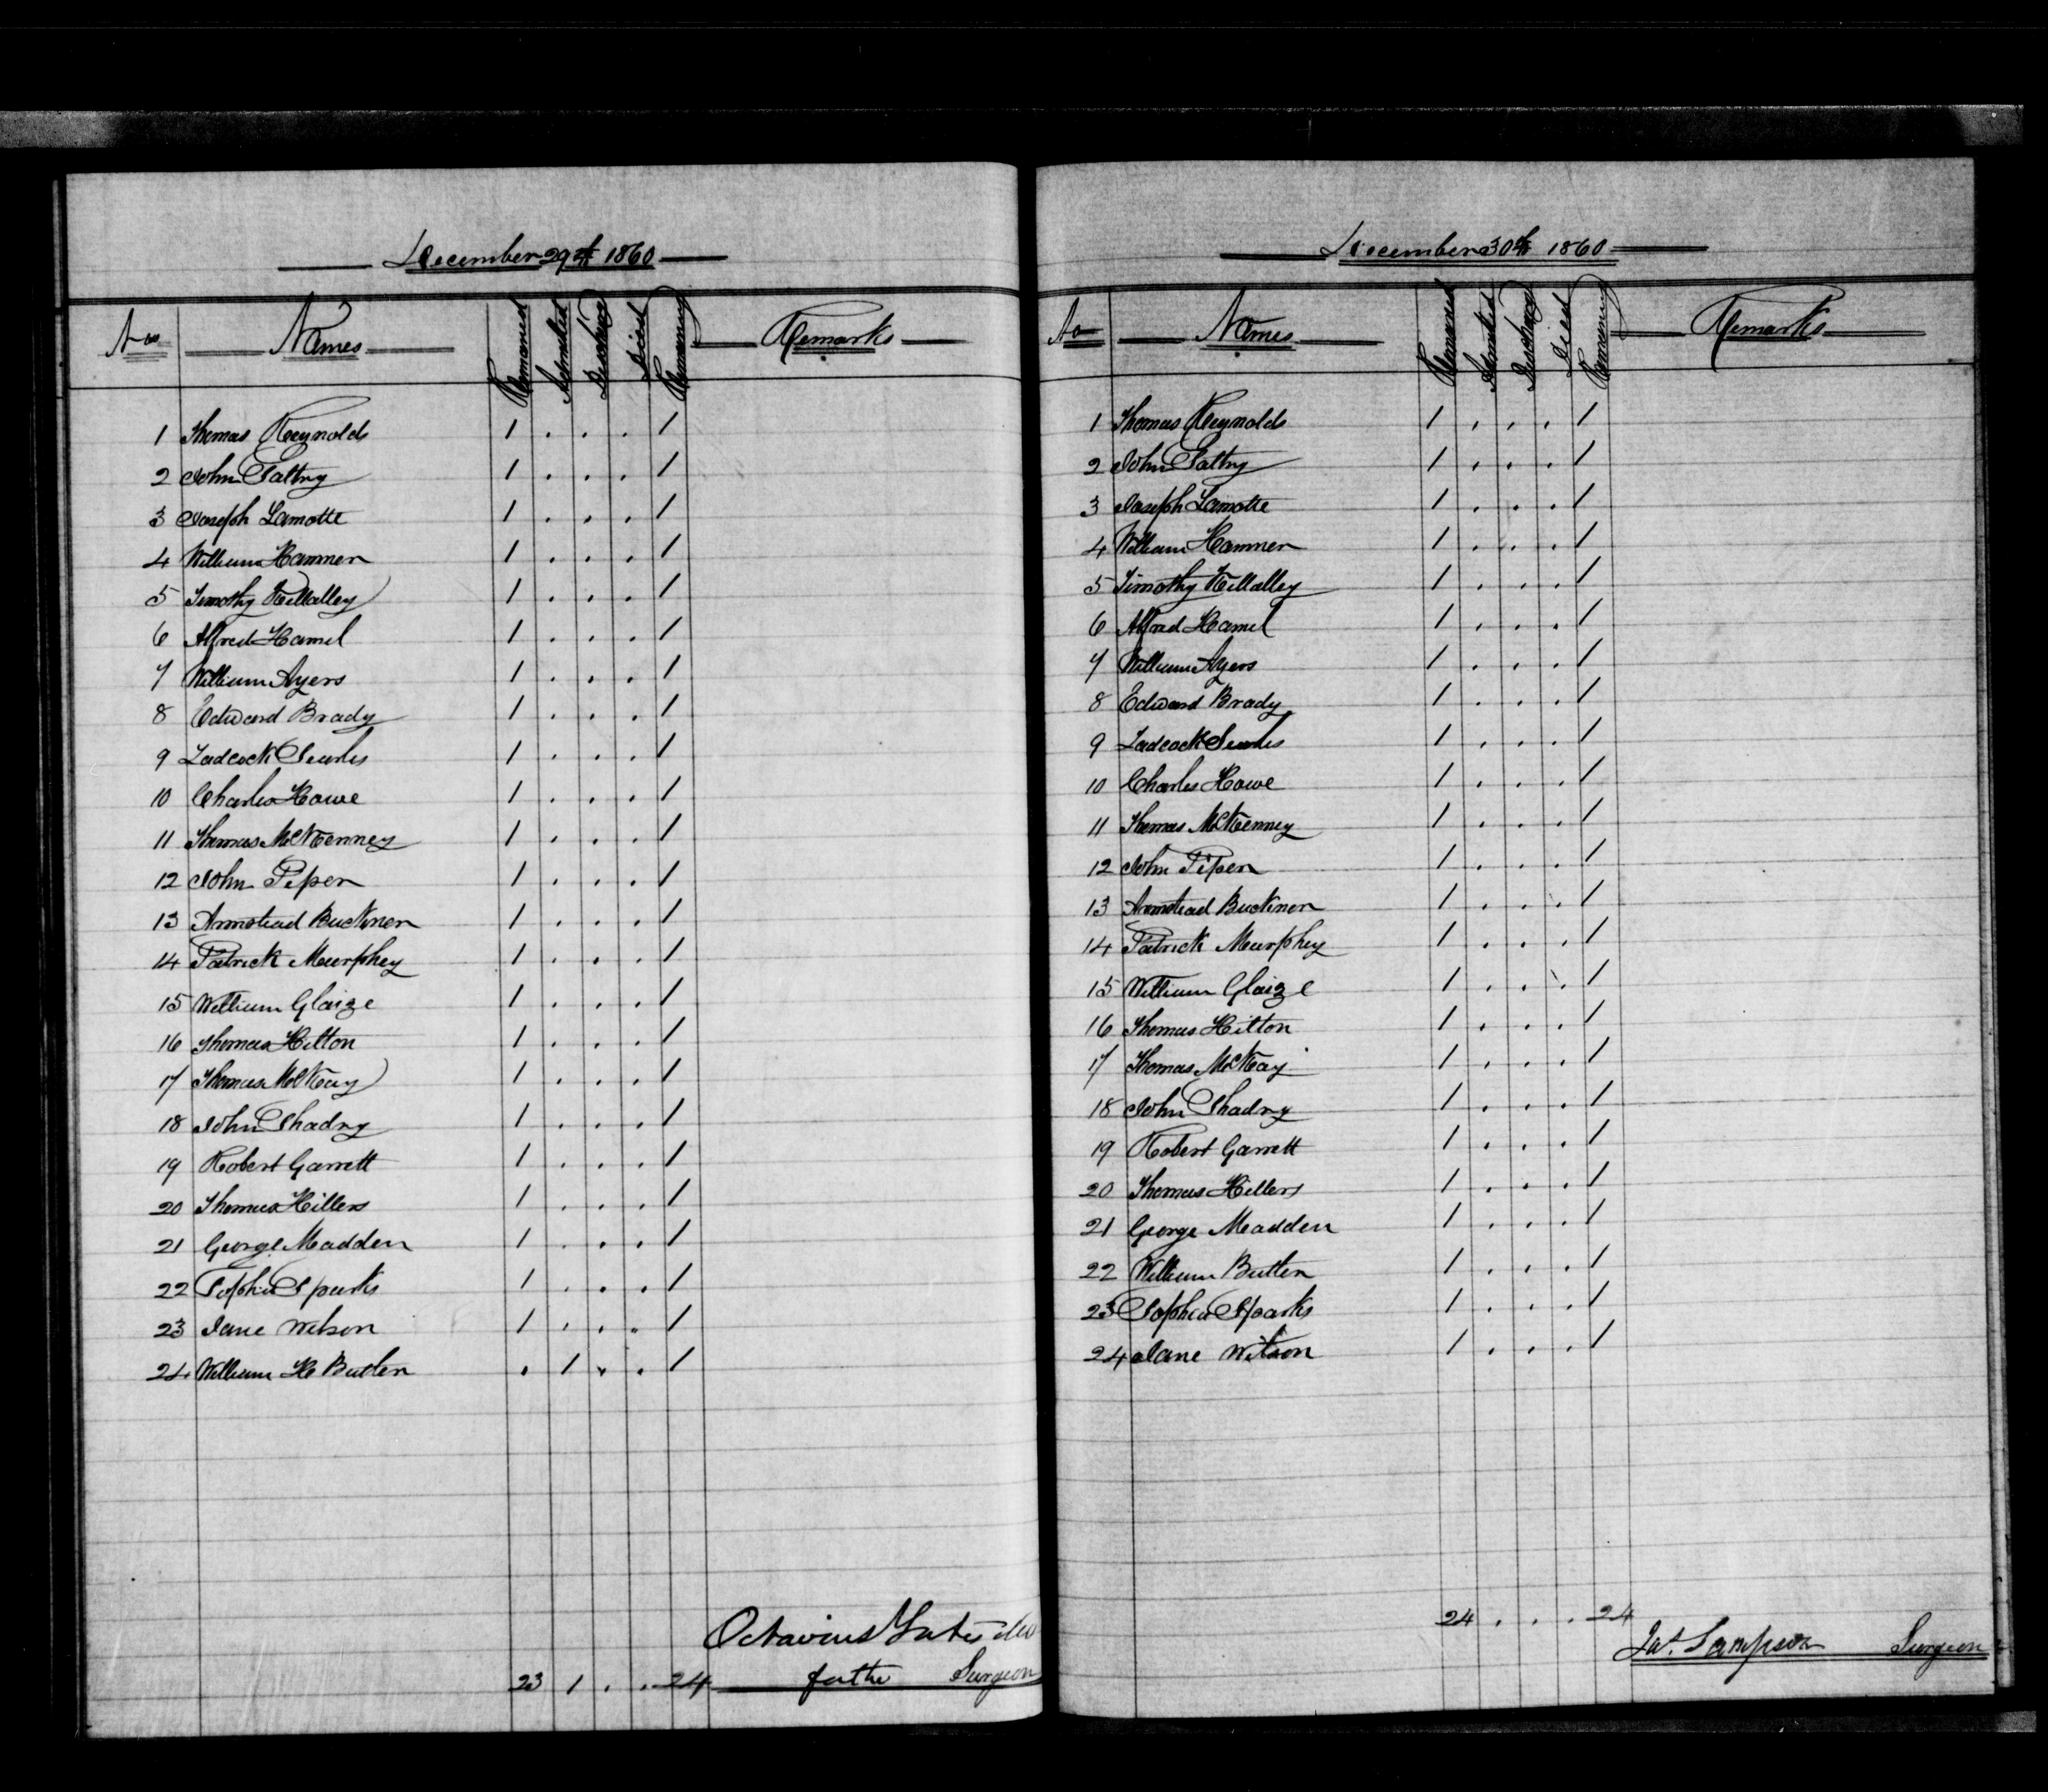 December 29th 1860
No Names Remained Admitted Discharge Died Remaining Remarks
1 Thomas Reynolds 1 . . . 1
2 John Saltry 1 . . . 1
3 Joseph Lamotte 1 . . . 1
4 William Hamner 1 . . . 1
5 Timothy Killalley 1 . . . 1
6 Alfred Hamel 1 . . . 1
7 William Ayers 1 . . . 1
8 Edward Brady 1 . . . 1
9 Ladcock Searles 1 . . . 1
10 Charles Howe 1 . . . 1
11 Thomas McKenney 1 . . . 1
12 John Piper 1 . . . 1
13 Armstead Buckner 1 . . . 1
14 Patrick Murphey 1 . . . 1
15 William Glaize 1 . . . 1
16 Thomas Hilton 1 . . . 1
17 Thomas McKay 1 . . . 1
18 John Shadny 1 . . . 1
19 Robert Garrett 1 . . . 1
20 Thomas Hillers 1 . . . 1
21 George Madden 1 . . . 1
22 Sophia Sparks 1 . . . 1
23 Jane Wilson 1 . . . 1
24 William H Butler . 1 . . 1
Octavius Yates
23 1 . . 24 for the Surgeon
December 30th 1860
No Names Remained Admitted Discharg Died Remaining Remarks
1 Thomas Reynolds 1 . . . 1
2 John Saltry 1 . . . 1
3 Joseph Lamotte 1 . . . 1
4 William Hamner 1 . . . 1
5 Timothy Killalley 1 . . . 1
6 Alfred Hamel 1 . . . 1
7 William Ayers 1 . . . 1
8 Edward Brady 1 . . . 1
9 Ladcock Searles 1 . . . 1
10 Charles Howe 1 . . . 1
11 Thomas McKenney 1 . . . 1
12 John Piper 1 . . . 1
13 Armstead Buckner 1 . . . 1
14 Patrick Murphey 1 . . . 1
15 William Glaize 1 . . . 1
16 Thomas Hilton 1 . . . 1
17 Thomas McKay 1 . . . 1
18 John Shadny 1 . . . 1
19 Robert Garrett 1 . . . 1
20 Thomas Hillers 1 . . . 1
21 George Madden 1 . . . 1
22 William Butler 1 . . . 1
23 Sophia Sparks 1 . . . 1
24 Jane Wilson 1 . . . 1
24 . . . 24
Jas. Sampson Surgeon